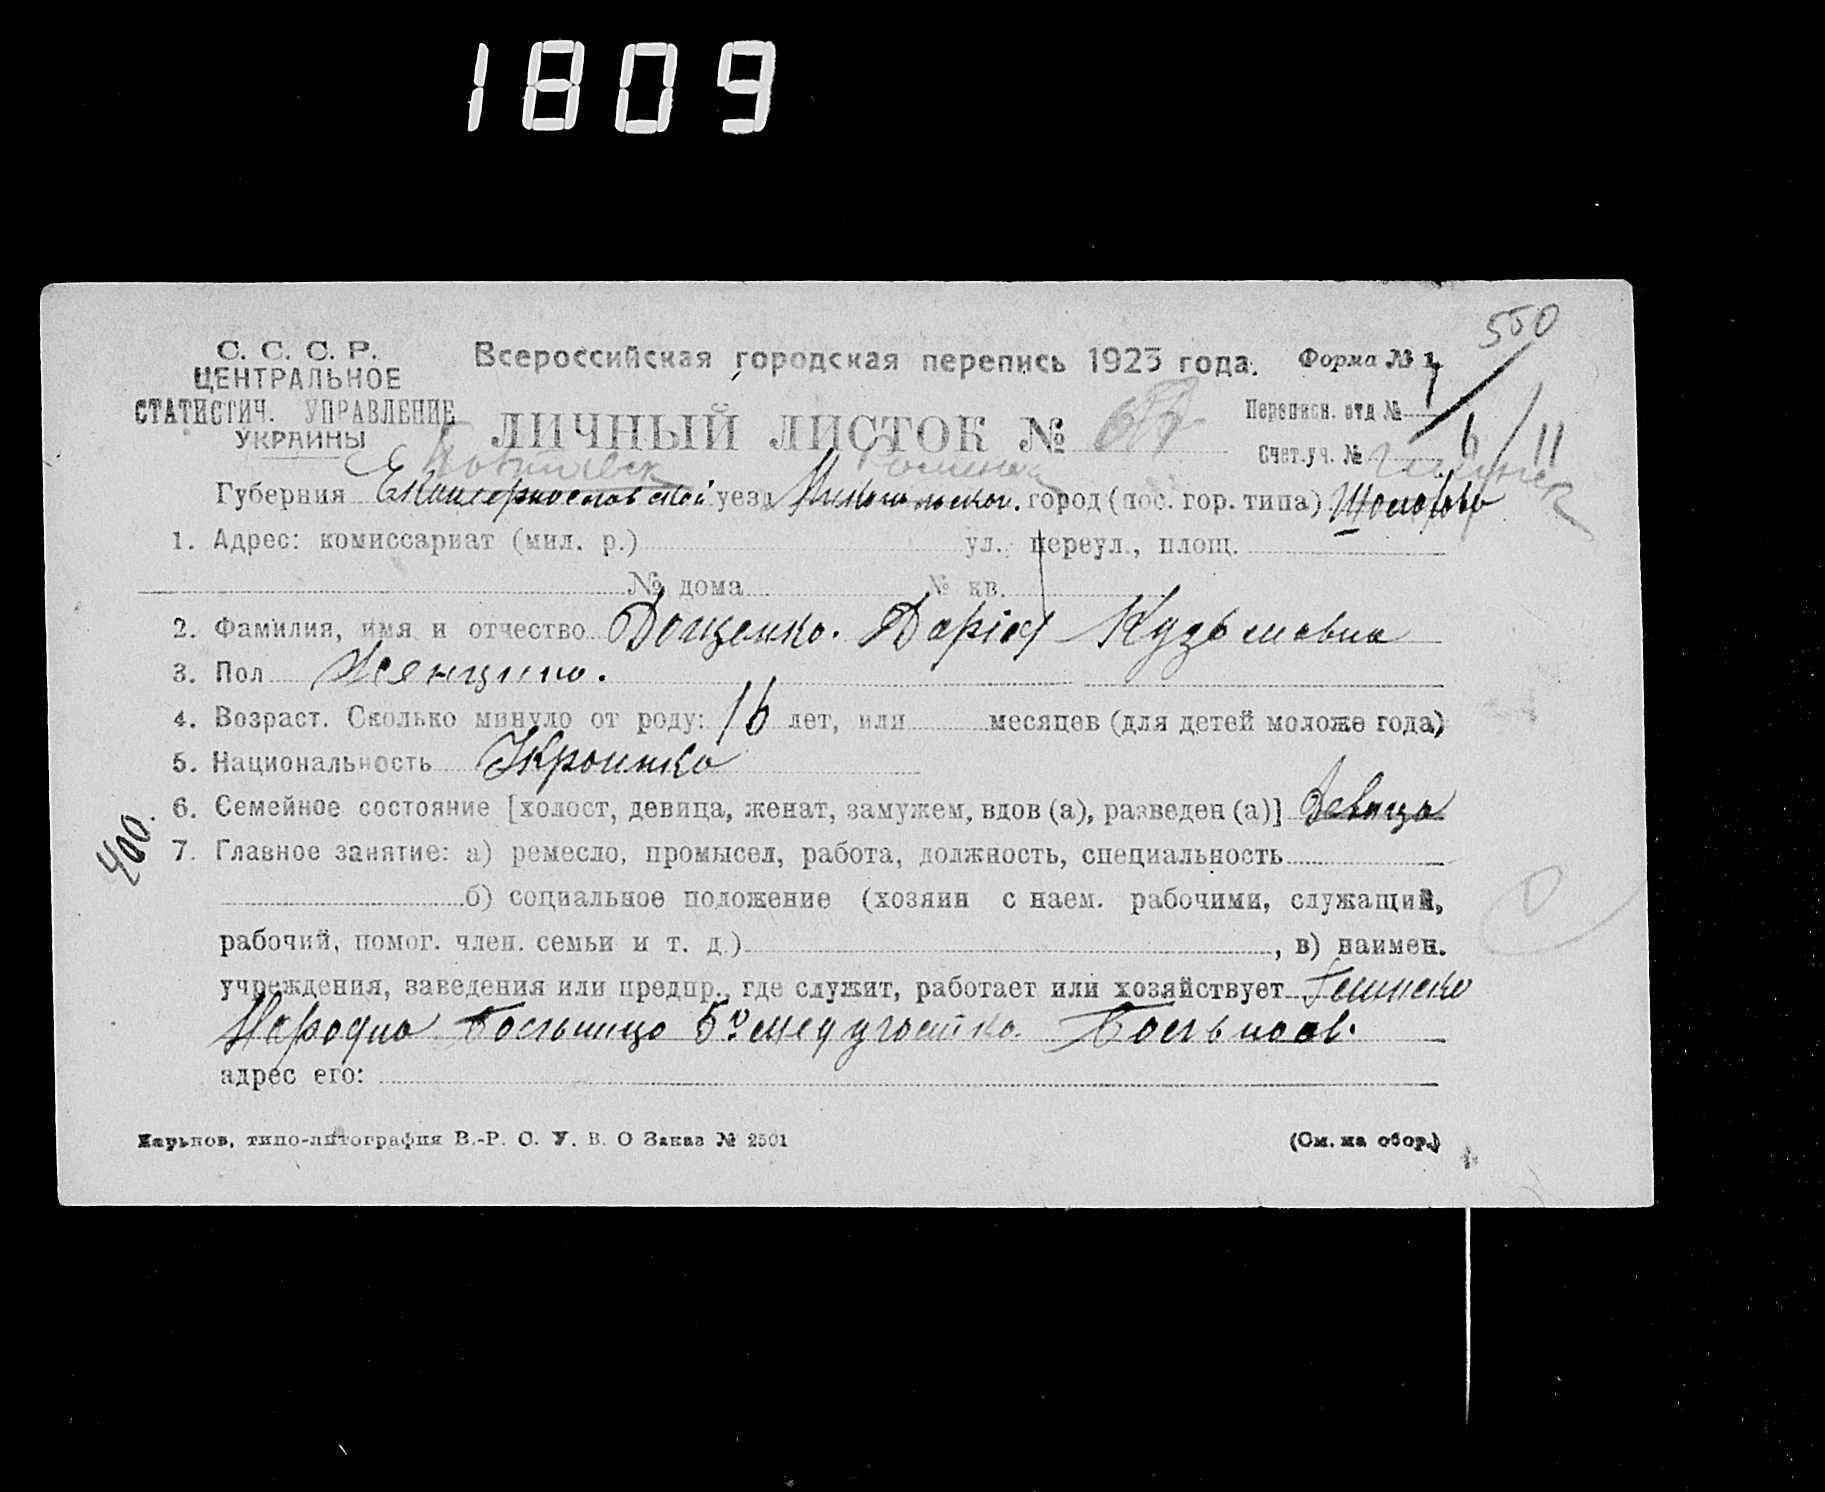 1809
550
С. С. С. Р.
ЦЕНТРАЛЬНОЕ
СТАТИСТИЧ. УПРАВЛЕНИЕ
УКРАИНЫ
Всероссийская городская перепись 1923 года. Форма № 1.
ЛИЧНЫЙ ЛИСТОК №
Переписн. отд № 1
Счет.уч. № 6 / 11
Губерния Екатеринославской уезд город (пос. гор. типа)
1. Адрес: комиссариат (мил. р.) ул., переул., площ.
№ дома № кв.
2. Фамилия, имя и отчество Дощенко. Дарія Кузьмовна
3. Пол Женщина.
4. Возраст. Сколько минуло от роду: 16 лет, или месяцев (для детей моложе года)
5. Национальность Украинка
6. Семейное состояние [холост, девица, женат, замужем, вдов (а), разведен (а)] Девица
400.
7. Главное занятие: а) ремесло, промысел, работа, должность, специальность
б) социальное положение (хозяин с наем. рабочими, служащий,
рабочий, помог. член. семьи и т. д.) , в) наимен.
учреждения, заведения или предпр., где служит, работает или хозяйствует
Народна больница
адрес его:
Харьков, типо-литография В.-Р. С. У. В. О Заказ № 2501 (См. на обор.)